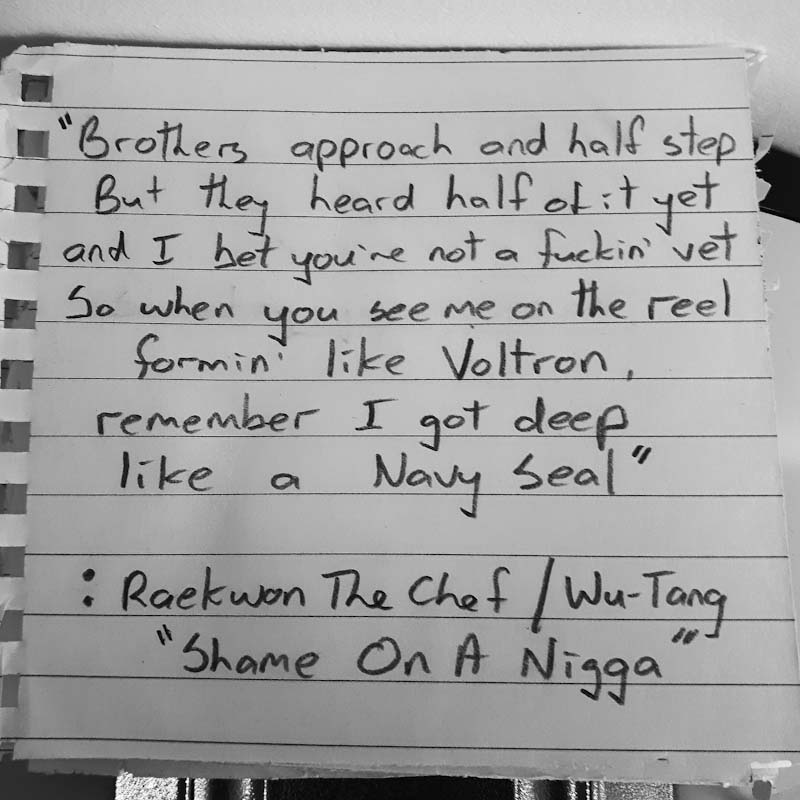 "Brothers approach and half step
But they heard half of it yet
and I bet you're not a fuckin' vet
So when you see me on the reel
formin' like Voltron,
remember I got deep
like a Navy Seal"
: Raekwon The Chef / Wu-Tang
"Shame On A Nigga"